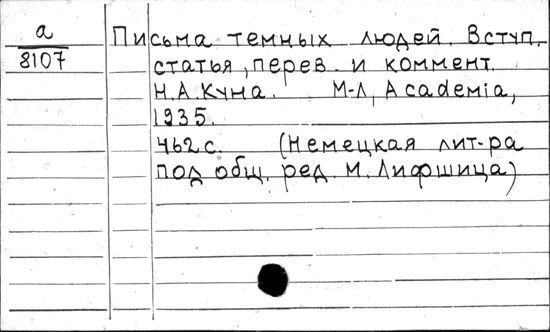 а
8107
Письма темных людей. Вступ.
статья, перев. и коммент.
Н.А.Куна. М-Л, Academia,
1935.
462 с. (Немецкая лит-ра
под общ. ред. М. Лифшица)